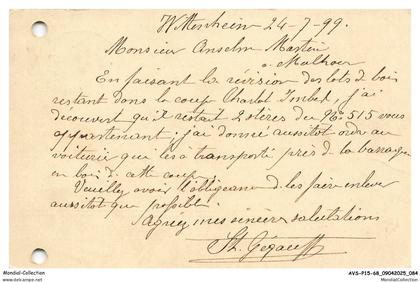 Wittenheim 24-7-99.
Monsieur Anselm Martin
a Mulhouse
En faisant la revision des lots de bois
restant dans la coupe Charlot Imbel, j'ai
découvert qu'il restait 2 stères du No 515 vous
appartenant; j'ai donné aussitot ordre au
voiturier que les a transporté près de la barraque
en bois de cette coupe.
Veuillez avoir l'obligeance de les faire enlever
aussitot que possible.
Agréez mes sincères salutations
St. Gégauff
Mondial-Collection
Mondial-Collection
AVS-P15-68_09042025_084